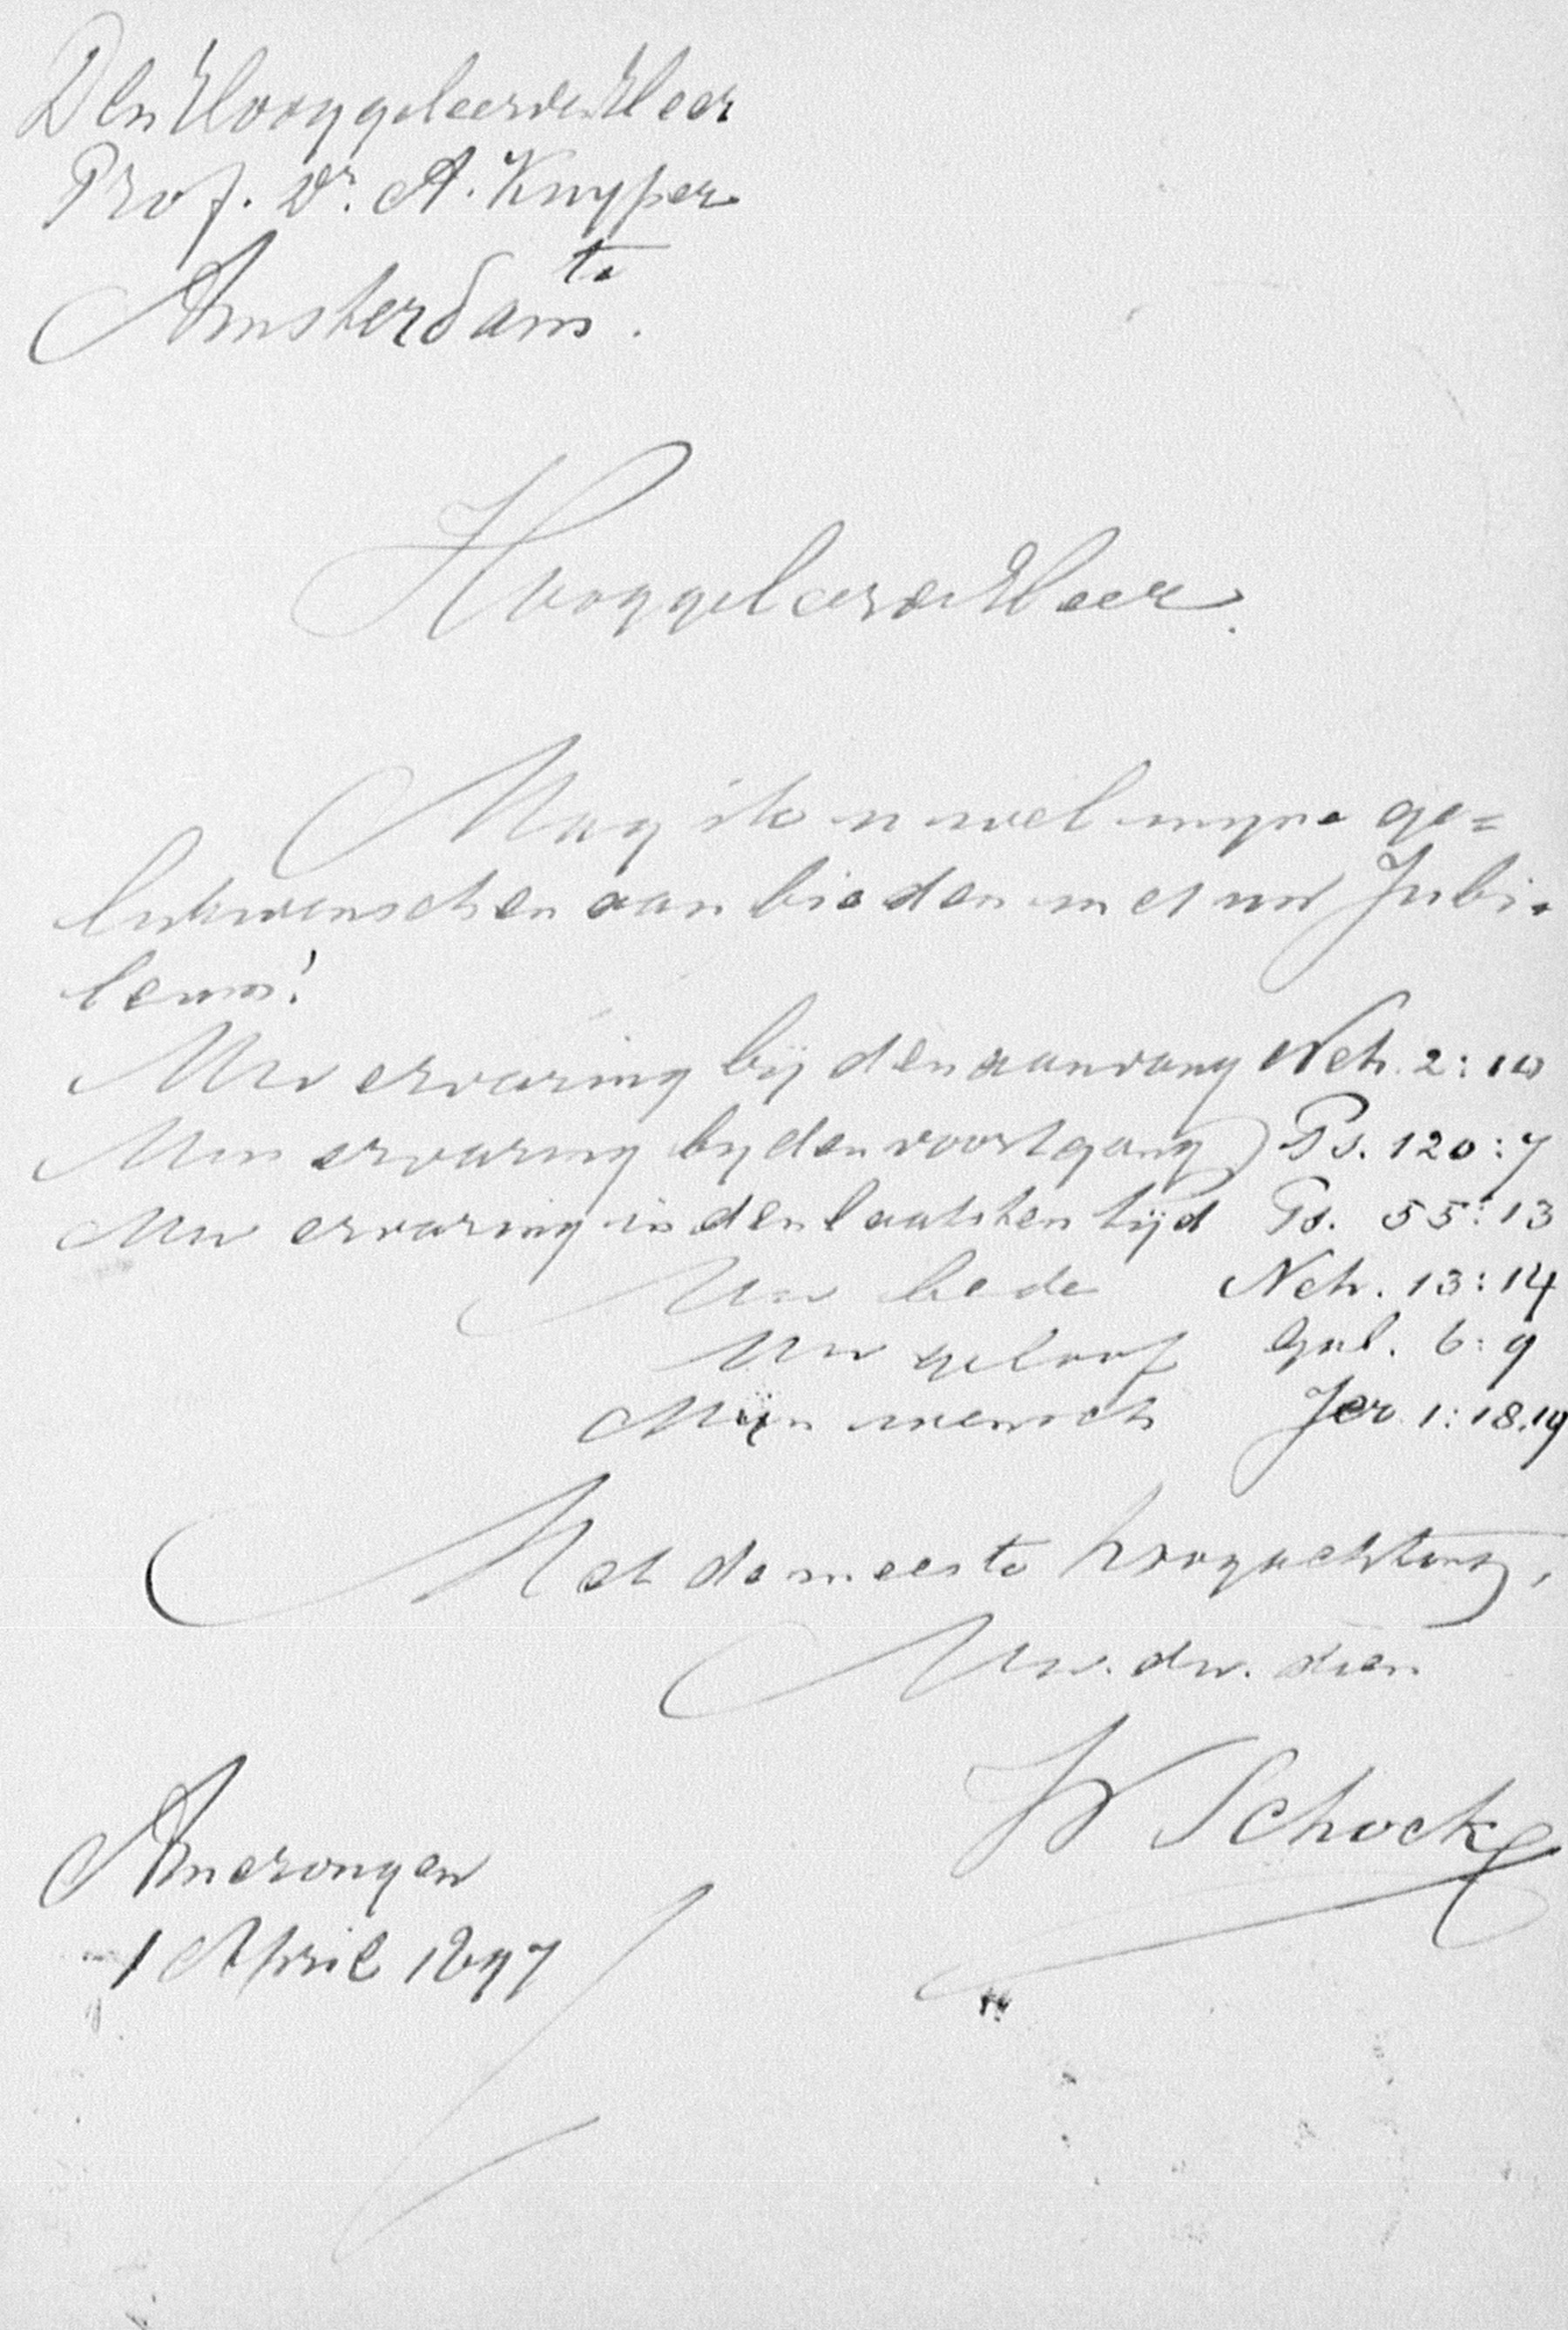 Den Hooggeleerden Heer
Prof. Dr. A. Kuyper
te
Amsterdam.
Hooggeleerde Heer.
Mag ik u wel mijne ge=
lukwenschen aanbieden met uw Jubi-
leum!
Uw ervaring bij den aanvang Neh. 2:10
Uw ervaring bij den voortgang Ps. 120:7
Uw ervaring in den laatsten tijd Ps. 55:13
Uw bede Neh. 13:14
Uw geloof Gal. 6:9
Mijn wensch Jer. 1:18.19
Met de meeste hoogachting,
Uw. dw. dien
W Schock
Amerongen
1 April 1897